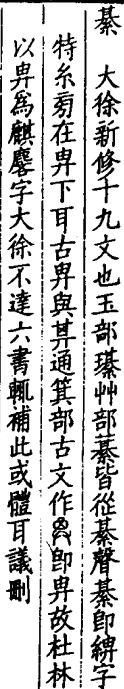 綦　大徐新修十九文也玉部璂艸部藄皆從綦聲綦卽綥字
特糸菊在畀下耳古畀與其通箕部古文作𠔛卽畀故杜林
以畀爲麒麐字大徐不達六書輒補此或體耳議刪